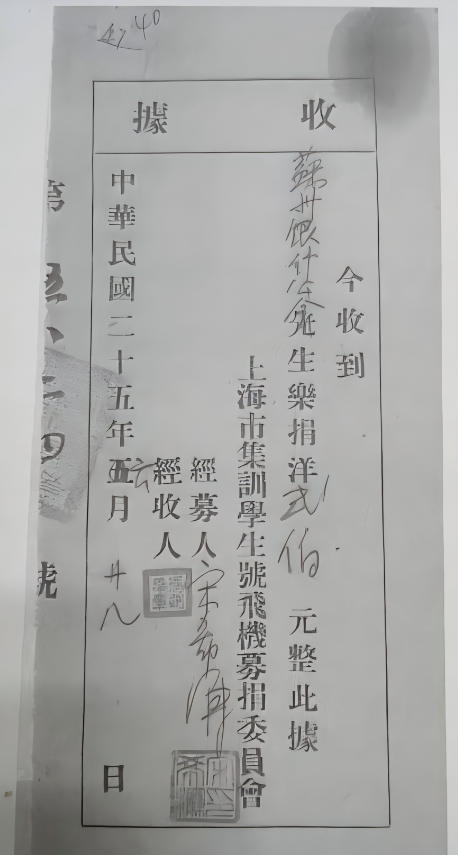 40
收據
今收到
蘇州銀什公會先生樂捐洋弍佰元整此據
上海市集訓學生號飛機募捐委員會
經募人 宋希
經收人
中華民國二十五年五六月廿八日
第五八二四號